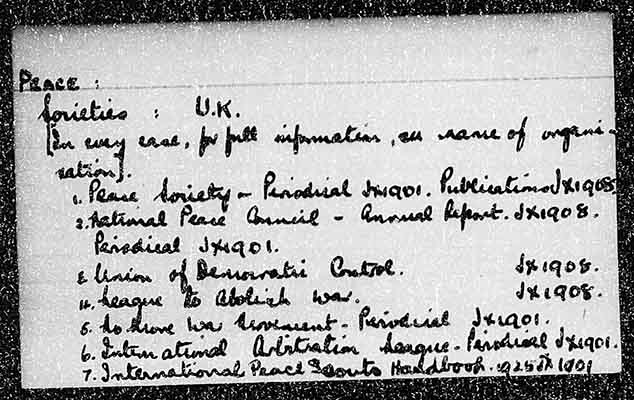 PEACE :
Societies : U.K.
[In every case, for full information, see name of organi-
sation].
1. Peace Society - Periodical JX1901. Publications JX1908.
2. National Peace Council - Annual Report. JX1908.
Periodical JX1901.
3. Union of Democratic Control. JX1908.
4. League to Abolish War. JX1908.
5. No More War Movement - Periodical JX1901.
6. International Arbitration League - Periodical JX1901.
7. International Peace Scouts Handbook. 1925 JX1901